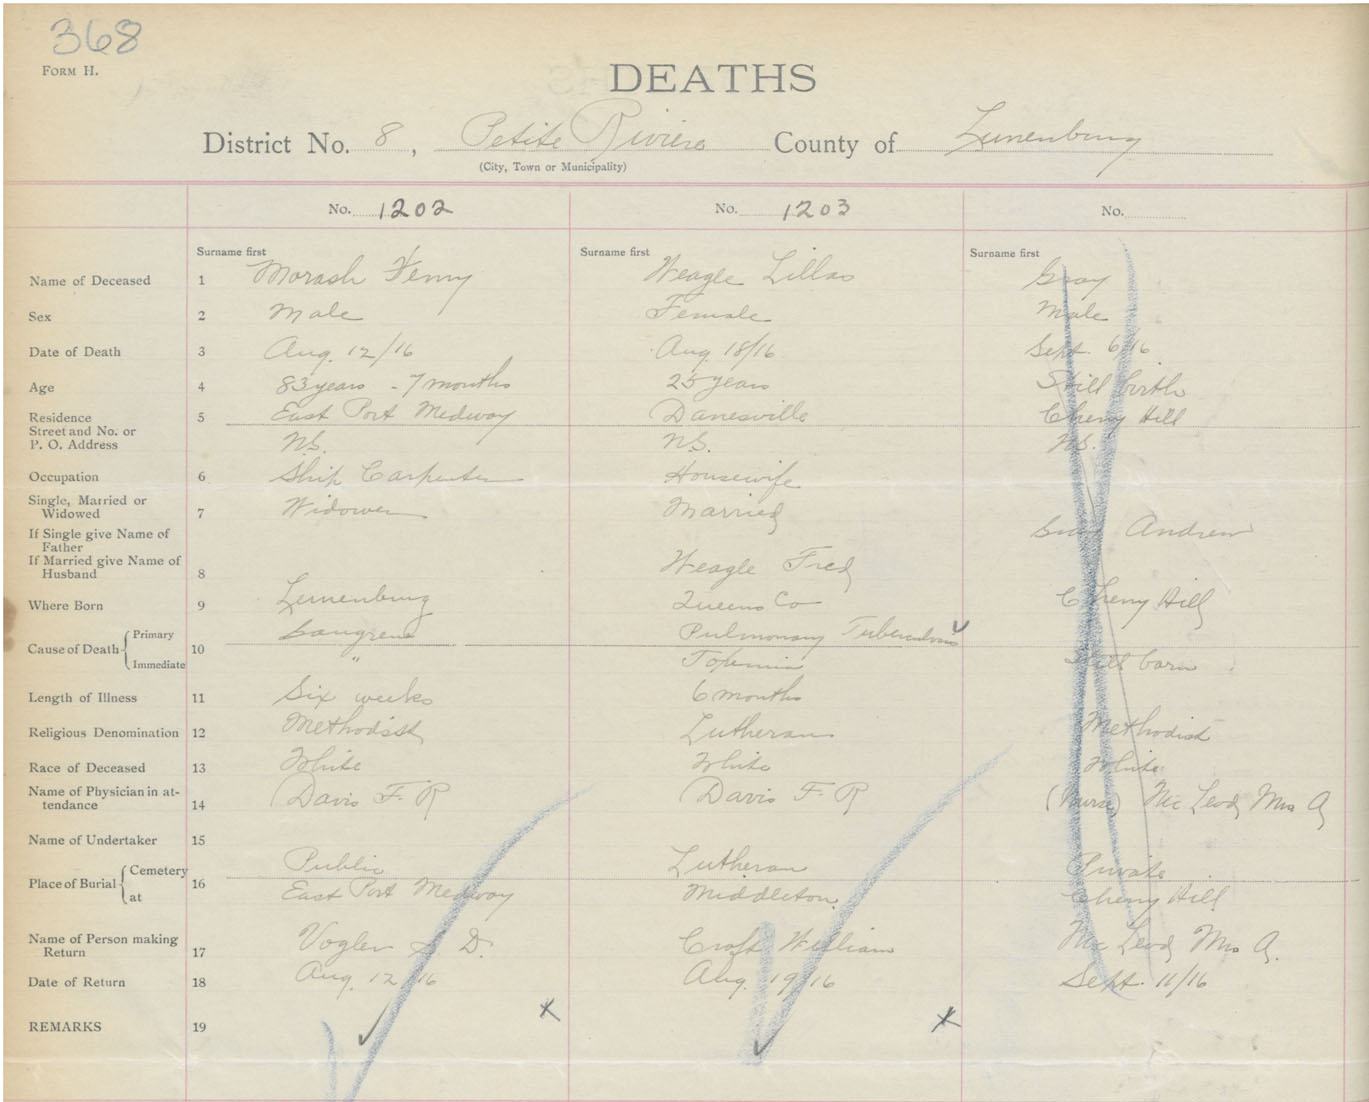 368
FORM H.
DEATHS
District No. 8, Petite Riviere County of Lunenburg
(City, Town or Municipality)
No. 1202 No. 1203 No.
Surname first Surname first Surname first
Name of Deceased 1 Morash Henry Weagle Lillas Gray
Sex 2 Male Female Male
Date of Death 3 Aug. 12/16 Aug 18/16 Sept. 6/16
Age 4 83 years - 7 months 25 years Still birth
Residence 5 East Port Medway Danesville Cherry Hill
Street and No. or
P. O. Address N.S. N.S. N.S.
Occupation 6 Ship Carpenter Housewife
Single, Married or
Widowed 7 Widower Married
If Single give Name of
Father Gray Andrew
If Married give Name of
Husband 8 Weagle Fred
Where Born 9 Lunenburg Queens Co Cherry Hill
Cause of Death { Primary 10 Gangrene Pulmonary Tuberculosis
Immediate " Still born
Length of Illness 11 Six weeks 6 months
Religious Denomination 12 Methodist Lutheran Methodist
Race of Deceased 13 White White White
Name of Physician in at-
tendance 14 Davis F. R Davis F. R (Nurse) Mc Leod Mrs A
Name of Undertaker 15
Place of Burial { Cemetery 16 Public Lutheran Private
at East Port Medway Middleton Cherry Hill
Name of Person making
Return 17 Vogler S. D. Croft William Mc Leod Mrs A.
Date of Return 18 Aug. 12/16 Aug. 19/16 Sept. 11/16
REMARKS 19